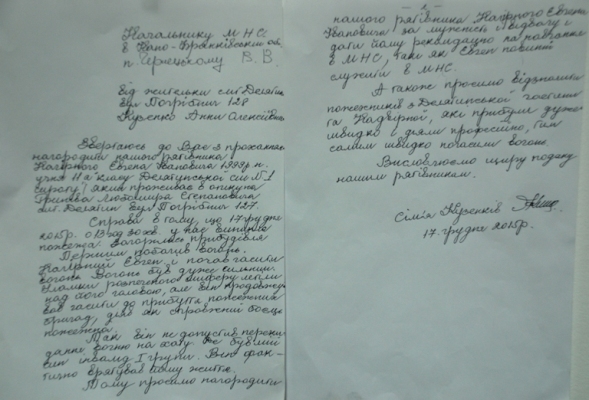 Начальнику М Н С
в Івано-Франківській об.
п. Чернецькому В. В.
від жительки смт Делятин
вул Погрібної 128
Кузенко Анни Олексіївни
Звертаюсь до Вас з проханням
нагородити нашого рятівника
Нагірного Євгена Івановича 1999р н.
учня 11 а класу Делятинської СШ №1
сироту (який проживає в опікуна
Любомира Степановича
смт. Делятин вул Погрібної 127.
Справа в тому, що 17 грудня
2015р. о 13 год 30 хв. у нас виникла
пожежа. Загорілась прибудова
Першим побачив вогонь
Нагірний Євген і почав гасити
вогонь. Вогонь був дуже сильний.
Уламки розпеченого шиферу летіли
над його головою, але він продовжу-
вав гасити до прибуття пожежних
бригад, діяв як справжній боєць
пожежник.
Так він не допустив переки-
дання вогню на хату де був мій
син інвалід І групи. Він фак-
тично врятував йому життя.
Тому просимо нагородити
- 2 -
нашого рятівника Нагірного Євгена
Івановича за мужність і відвагу і
дати йому рекомендацію на навчання
в МНС, такі як Євген повинні
служити в МНС.
А також просимо відзначити
пожежників з Делятинської частини
та Надвірної, які прибули дуже
швидко і діяли професійно, тим
самим швидко погасили вогонь.
Висловлюємо щиру подяку
нашим рятівникам.
Сімія Кузенків
17. грудня 2015р.